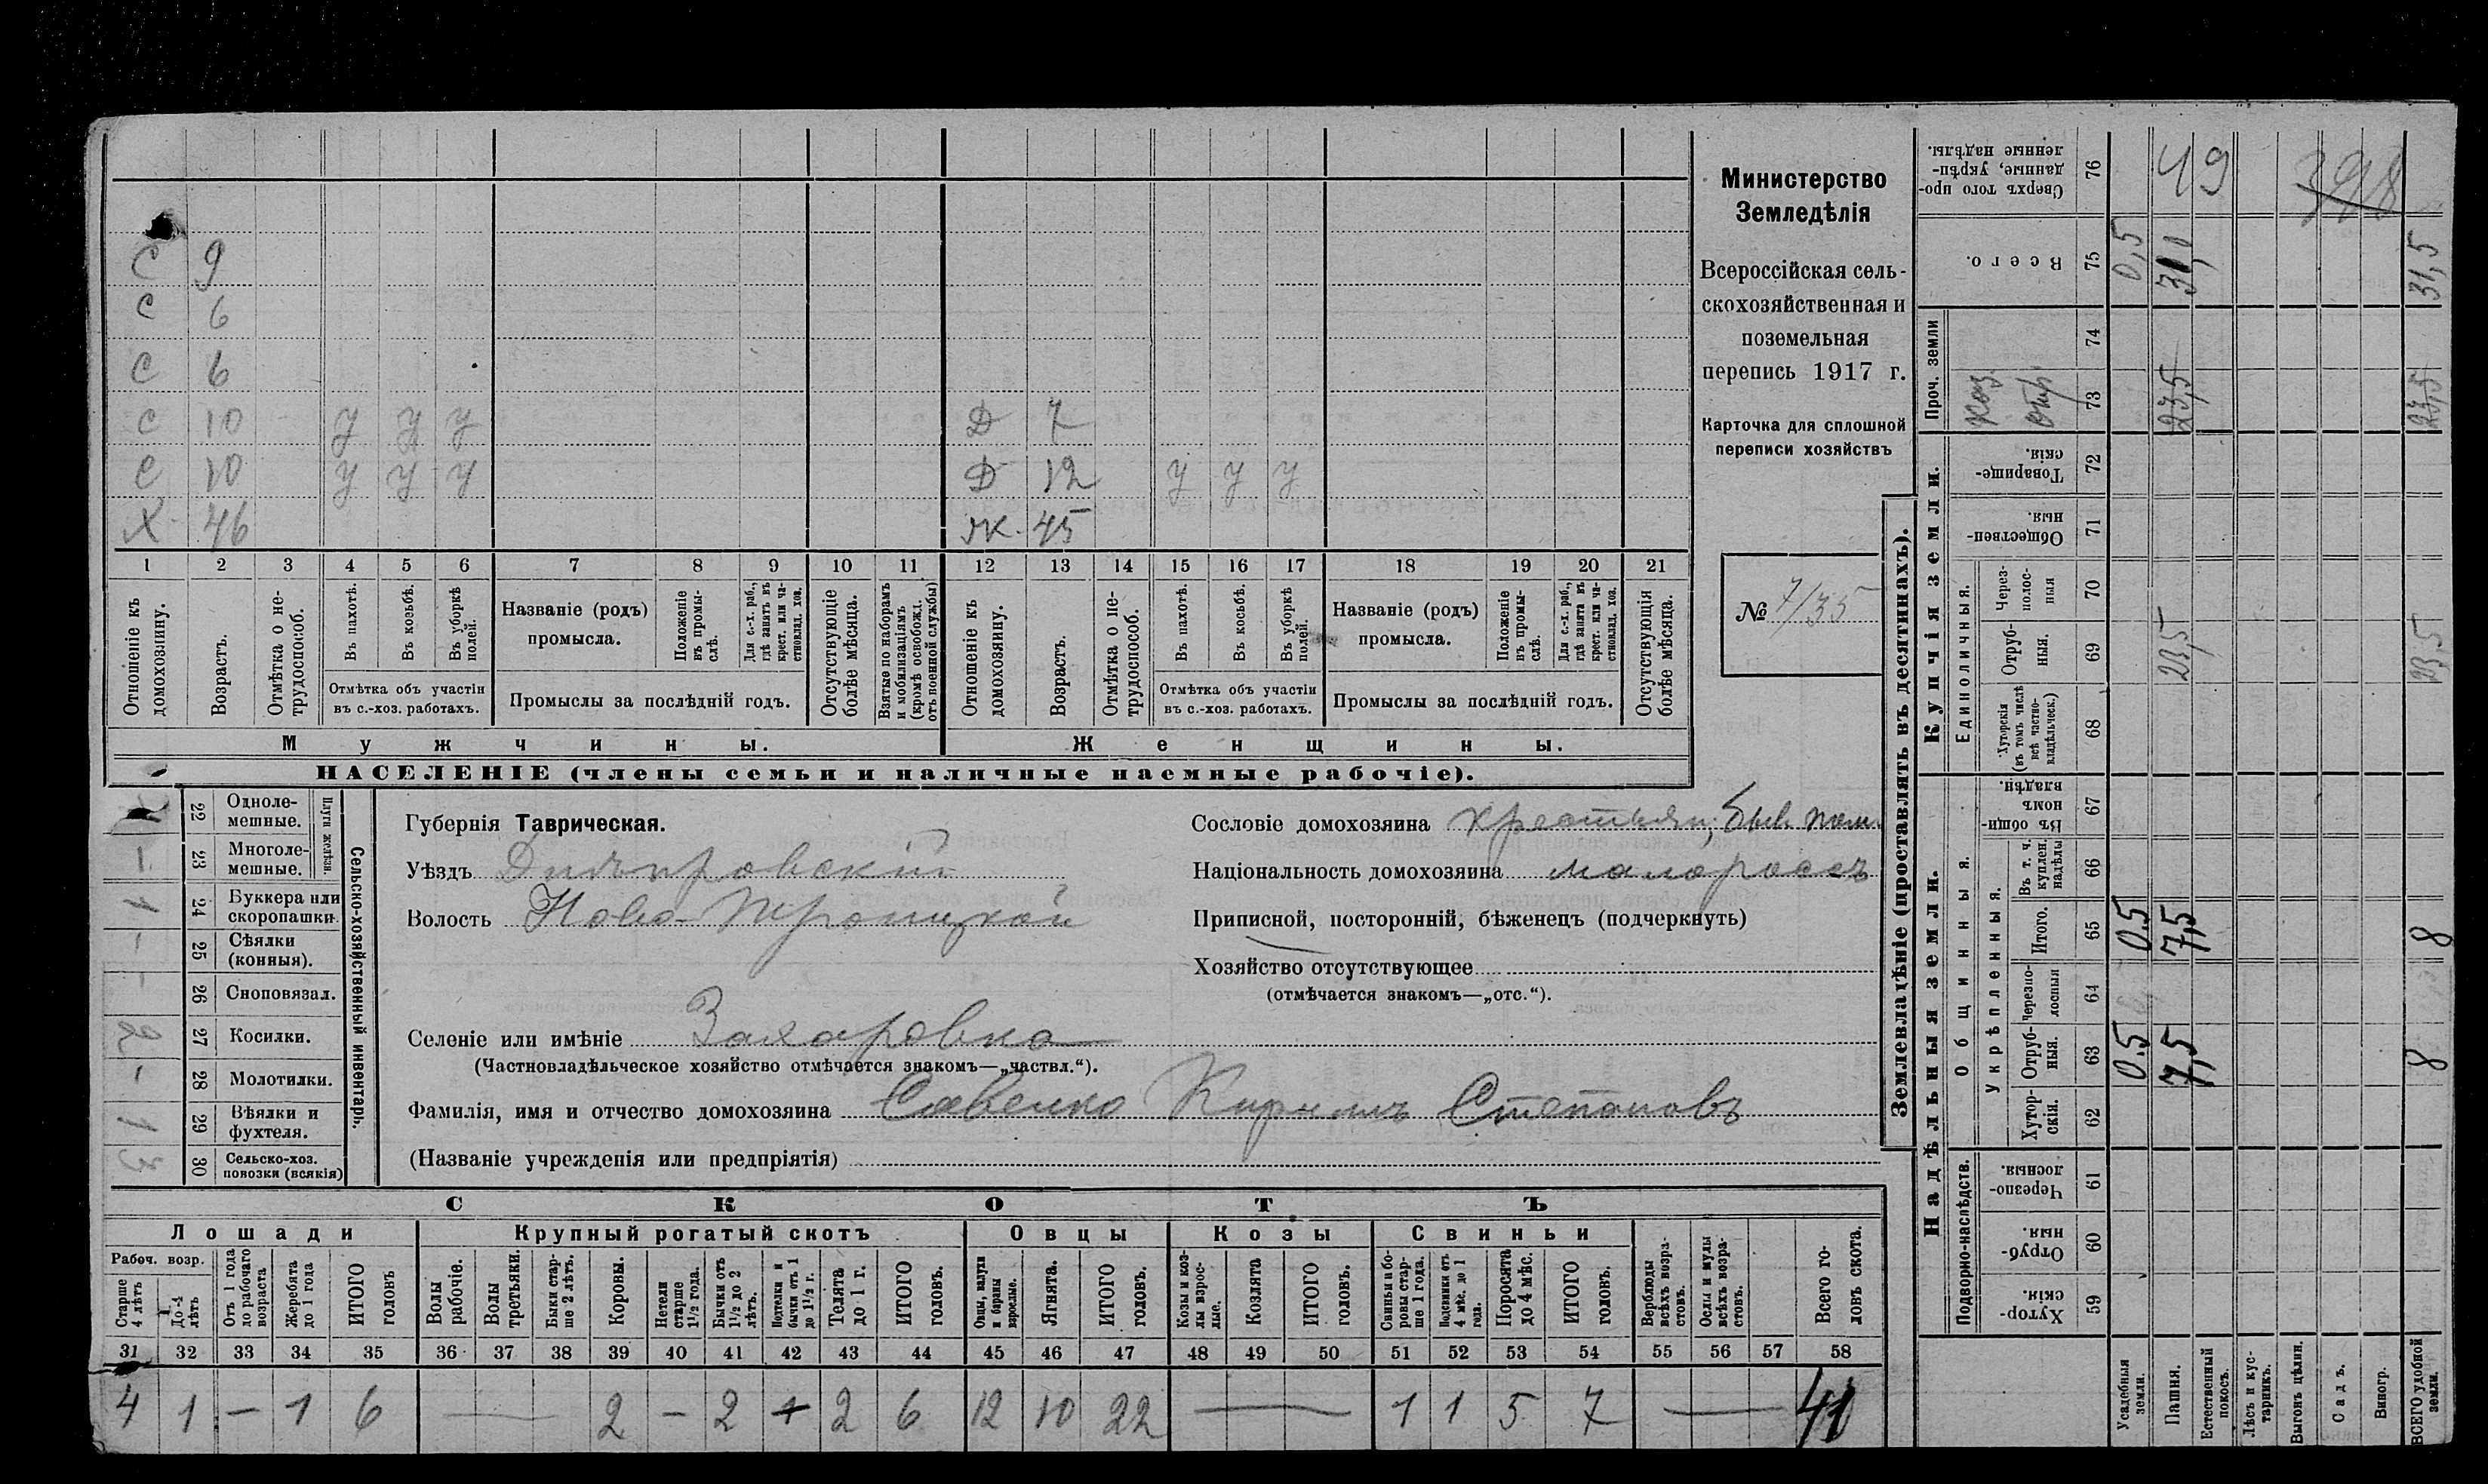 С 9
С 6
С 6
С 10 У У У Д 7
С 10 У У У Д 12 У У У
Х. 46 Ж. 45
1 2 3 4 5 6 7 8 9 10 11 12 13 14 15 16 17 18 19 20 21
Отношеніе къ домохозяину.
Возрастъ.
Отмѣтка о не-трудоспособ.
Въ пахотѣ.
Въ косьбѣ.
Въ уборкѣ полей.
Отмѣтка объ участіи
въ с.-хоз. работахъ.
Названіе (родъ)
промысла.
Положеніе въ промы-слѣ.
Для с.-х. раб., гдѣ занятъ въ крест. или ча-стновлад. хоз.
Промыслы за послѣдній годъ.
Отсутствующіе болѣе мѣсяца.
Взятые по наборамъ и мобилизаціямъ (кромѣ освобожд. отъ военной службы)
Отношеніе къ домохозяину.
Возрастъ.
Отмѣтка о не-трудоспособ.
Въ пахотѣ.
Въ косьбѣ.
Въ уборкѣ полей.
Отмѣтка объ участіи
въ с.-хоз. работахъ.
Названіе (родъ)
промысла.
Положеніе въ промы-слѣ.
Для с.-х. раб., гдѣ занята въ крест. или ча-стновлад. хоз.
Промыслы за послѣдній годъ.
Отсутствующія болѣе мѣсяца.
Мужчины. Женщины.
НАСЕЛЕНІЕ (члены семьи и наличные наемные рабочіе).
Министерство
Земледѣлія
Всероссійская сель-
скохозяйственная и
поземельная
перепись 1917 г.
Карточка для сплошной
переписи хозяйствъ
№ 7/35
Сельско-хозяйственный инвентарь.
Плуги желѣзн.
22 Одноле-мешные.
– 23 Многоле-мешные.
1 24 Буккера или скоропашки.
– 25 Сѣялки (конныя).
– 26 Сноповязал.
2 27 Косилки.
– 28 Молотилки.
1 29 Вѣялки и фухтеля.
3 30 Сельско-хоз. повозки (всякія)
Губернія Таврическая.
Уѣздъ Днѣпровскій
Волость Ново-Троицкой
Селеніе или имѣніе Захаровка
(Частновладѣльческое хозяйство отмѣчается знакомъ—„частвл.“).
Фамилія, имя и отчество домохозяина Савенко Кириллъ Степановъ
(Названіе учрежденія или предпріятія)
Сословіе домохозяина крестьян, быв. пом.
Національность домохозяина малороссъ
Приписной, посторонній, бѣженецъ (подчеркнуть)
Хозяйство отсутствующее
(отмѣчается знакомъ—„отс.“).
СКОТЪ
Лошади Крупный рогатый скотъ Овцы Козы Свиньи
Рабоч. возр.
Старше 4 лѣтъ
До 4 лѣтъ
Отъ 1 года до рабочаго возраста
Жеребята до 1 года
ИТОГО головъ
Волы рабочіе.
Волы третьяки.
Быки стар-ше 2 лѣтъ.
Коровы.
Нетели старше 1½ года.
Бычки отъ 1½ до 2 лѣтъ.
Подтелки и бычки отъ 1 до 1½ г.
Телята до 1 г.
ИТОГО головъ.
Овцы, валухи и бараны взрослые.
Ягнята.
ИТОГО головъ.
Козы и коз-лы взрос-лые.
Козлята
ИТОГО головъ.
Свиньи и бо-ровы стар-ше 1 года.
Подсвинки отъ 4 мѣс. до 1 года.
Поросята до 4 мѣс.
ИТОГО головъ.
Верблюды всѣхъ возра-стовъ.
Ослы и мулы всѣхъ возра-стовъ.
Всего го-ловъ скота.
31 32 33 34 35 36 37 38 39 40 41 42 43 44 45 46 47 48 49 50 51 52 53 54 55 56 57 58
4 1 – 1 6 — 2 – 2 + 2 6 12 10 22 — 1 1 5 7 — 41
Землевладѣніе (проставлять въ десятинахъ).
Надѣльныя земли. Купчія земли. Проч. земли
Подворно-наслѣдств. Общинныя. Укрѣпленныя. Единоличныя.
Сверхъ того про-данные, укрѣп-ленные надѣлы. 76 49 398
Всего. 75 0,5 31,0 31,5
74
каз. отр. 73 23,5 23,5
Товарище-скія. 72
Обществен-ныя. 71
Через-полос-ныя 70
Отруб-ныя. 69 23,5 23,5
Хуторскія (въ томъ числѣ всѣ частно-владѣльческ.) 68
Въ общин-номъ владѣн. 67
Въ т. ч. куплен. надѣлы 66
Итого. 65 0.5 7,5 8
Черезпо-лосныя 64
Отруб-ныя. 63 0.5 7,5 8
Хутор-скія. 62
Черезпо-лосныя. 61
Отруб-ныя. 60
Хутор-скія. 59
Усадебныя земли.
Пашня.
Естественный покосъ.
Лѣсъ и кус-тарникъ.
Выгонъ цѣлин.
Садъ.
Виногр.
ВСЕГО удобной земли.